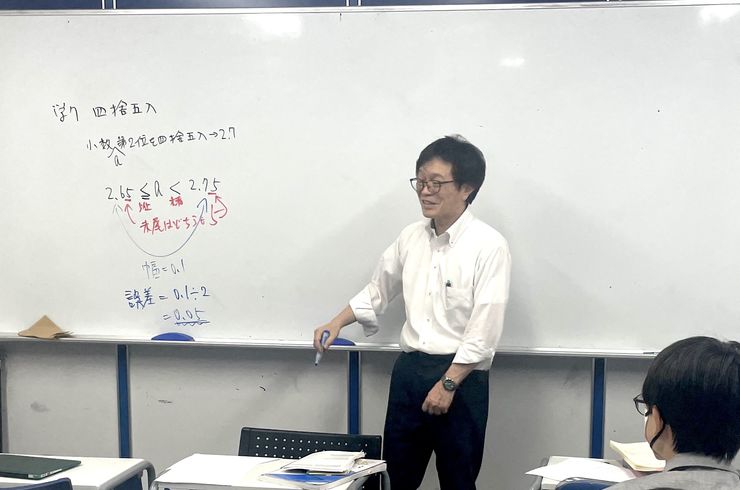 学7 四捨五入
小数第2位を四捨五入→2.7
a
2.65 ≦ a < 2.75
末尾はどちらも5
幅=0.1
誤差 = 0.1÷2
= 0.05